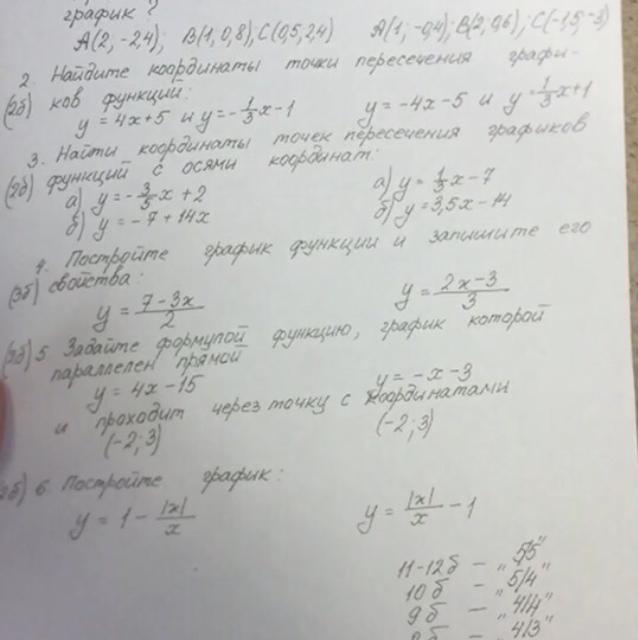 график?
А(2; -2,4); В(1; 0,8); С(0,5; 2,4) А(1; -0,4); В(2; 0,6); С(-1,5; -3)
2. Найдите координаты точки пересечения графи-
(2б) ков функций:
y = 4x+5 и y = -1/3x-1 y = -4x-5 и y = 1/3x+1
3. Найти координаты точек пересечения графиков
(2б) функций с осями координат:
а) y = -3/5x+2 а) y = 1/5x-7
б) y = -7+14x б) y = 3,5x-14
4. Постройте график функции и запишите его
(3б) свойства:
y = (7-3x)/2 y = (2x-3)/3
(2б) 5 Задайте формулой функцию, график которой
параллелен прямой
y = 4x-15 y = -x-3
и проходит через точку с координатами
(-2; 3) (-2; 3)
6 Постройте график:
y = 1 - |x|/x y = |x|/x - 1
11-12б – „5/5"
10б – „5/4"
9б – „4/4"
8б – „4/3"